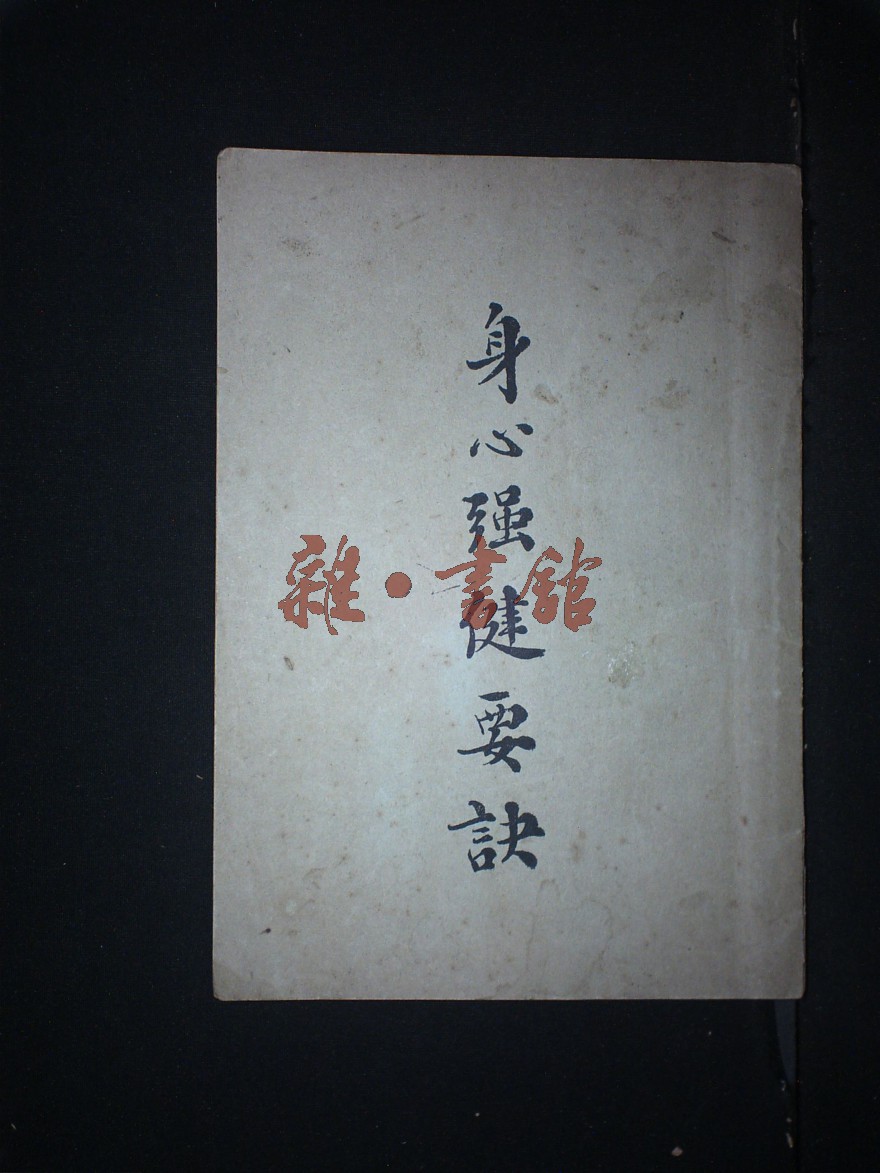 身心强健要訣
雜·書館